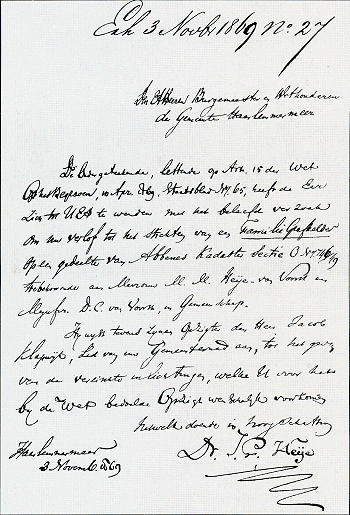 Exh 3 Novbr 1869 No. 27
Den Heeren Burgemeester en Wethouderen
der Gemeente Haarlemmermeer
De Ondergeteekende, lettende op Art. 15 der Wet
op het Begraven, 10 Apr. 1869, Staatsblad No. 65, heeft de Eer
zich tot UEA te wenden met het beleefd verzoek
om verlof tot het stichten van een Familie Grafkelder
op een gedeelte van Abbenes Kadaster Sectie O No.
toebehoorende aan Mevrouw M. M. Heije-van Voorst en
Mejufvr. D. C. van Voorst, in Gemeenschap.
Hy wyst tevens den Heer Jacob
Klapwijk, Lid van uw Gemeenteraad aan, tot het geven
van de vereischte inlichtingen, welke U voor het
by de Wet bedoelde
Hetwelk doende in hoogachting
Haarlemmermeer
3 November 1869
Dr. J. P. Heije